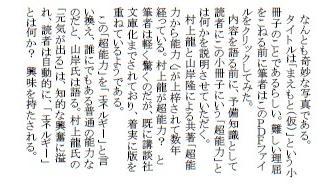 なんとも奇妙な写真である。
タイトルは「まえもと(仮)」という小
冊子のことであるらしい。難しい理屈
をこねる前に筆者はこのPDFファイ
ルをクリックしてみた。
内容を語る前に、予備知識として
読者にこの小冊子にいう「超能力」と
は何かを説明させていただく。
村上龍と山岸隆による共著『超能
力から能力へ』が上梓されて数年
経っている。村上龍が超能力？　と
筆者は軽く驚くのだが、既に講談社
文庫化までされており、着実に版を
重ねているようである。
この「超能力」を「エネルギー」と言
い換え、誰にでもある普通の能力な
のだと、山岸氏は語る。村上龍氏の
「元気が出る」は、知的な興奮に溢
れ、読者は自動的に、「エネルギー」
とは何か？　興味を持たされる。